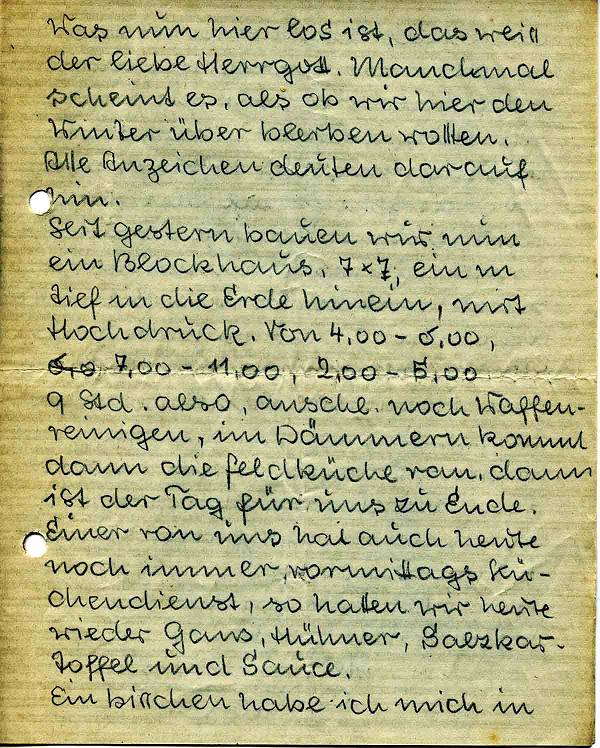 Was nun hier los ist, das weiß
der liebe Herrgott. Manchmal
scheint es, als ob wir hier den
Winter über bleiben wollten.
Alle Anzeichen deuten darauf
hin.
Seit gestern bauen wir nun
ein Blockhaus, 7x7, ein m
tief in die Erde hinein, mit
Hochdruck. Von 4,00 - 6,00,
7,00 - 11,00, 2,00 - 5,00
9 Std. also, anschl. noch Waffen-
reinigen, im Dämmern kommt
dann die Feldküche ran, dann
ist der Tag für uns zu Ende.
Einer von uns hat auch heute
noch immer, vormittags Kü-
chendienst, so hatten wir heute
wieder Gans, Hühner, Salzkar-
toffel und Sauce.
Ein bißchen habe ich mich in